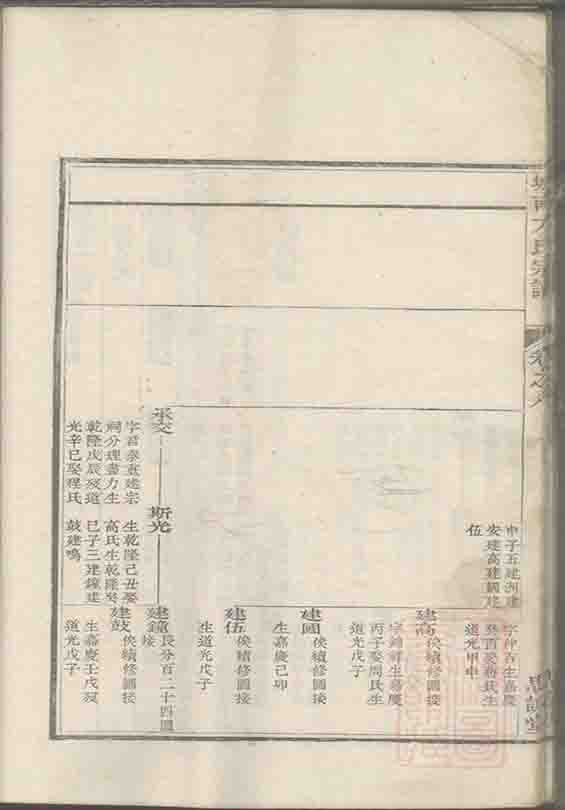 卷之八
思誠堂
甲子五建洲建
安建高建國建
伍
字仲百生嘉慶
癸酉娶蔣氏生
道光甲申
建高俟續修圖接
字錦祥生嘉慶
丙子娶周氏生
道光戊子
建國俟續修圖接
生嘉慶己卯
建伍俟續修圖接
生道光戊子
承交
字君泰重建宗
祠分理盡力生
乾隆戊辰歿道
光辛巳娶程氏
斯光
生乾隆己丑娶
高氏生乾隆癸
巳子三建鐘建
鼓建鳴
建鐘長分百二十四圖
接
建鼓俟續修圖接
生嘉慶壬戌歿
道光戊子